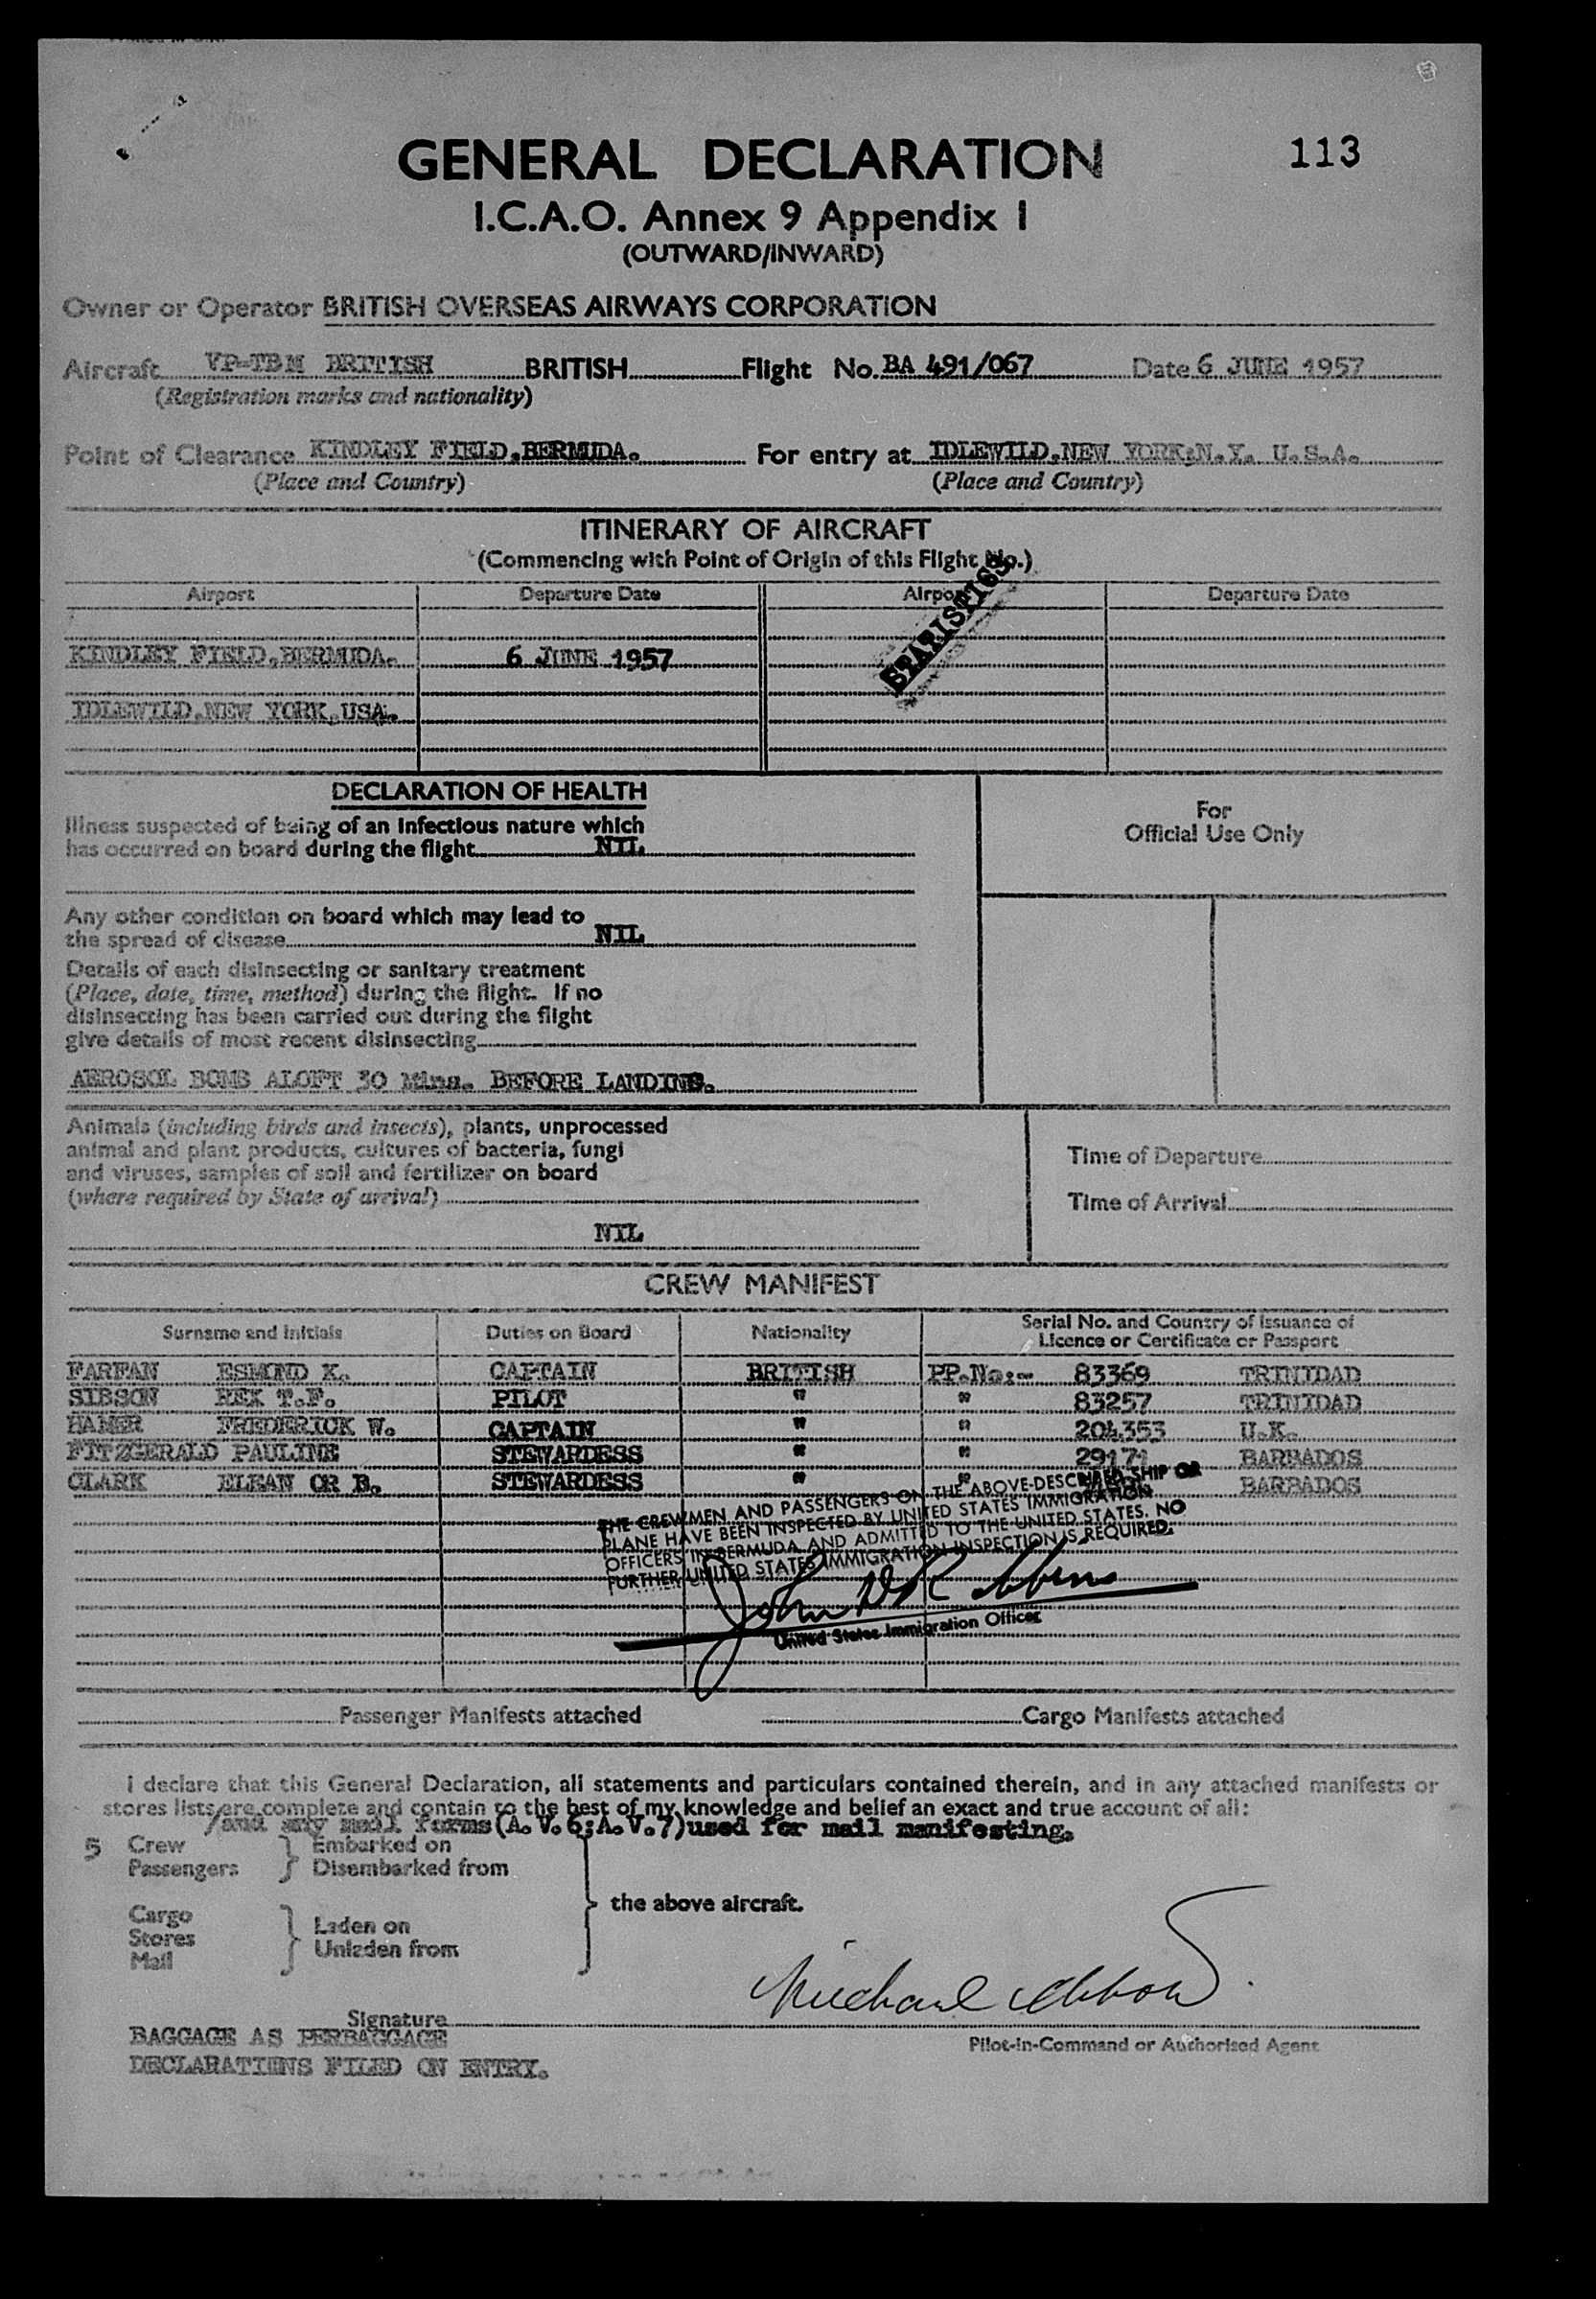 GENERAL DECLARATION 113
I.C.A.O. Annex 9 Appendix I
(OUTWARD/INWARD)
Owner or Operator BRITISH OVERSEAS AIRWAYS CORPORATION
Aircraft VP-TBM BRITISH BRITISH Flight No. BA 491/067 Date 6 JUNE 1957
(Registration marks and nationality)
Point of Clearance KINDLEY FIELD,BERMUDA. For entry at IDLEWILD,NEW YORK;N.Y. U.S.A.
(Place and Country) (Place and Country)
ITINERARY OF AIRCRAFT
(Commencing with Point of Origin of this Flight No.)
Airport Departure Date Airport Departure Date
STATISTICS
KINDLEY FIELD,BERMUDA. 6 JUNE 1957
IDLEWILD,NEW YORK,USA.
DECLARATION OF HEALTH
For
Official Use Only
Illness suspected of being of an infectious nature which
has occurred on board during the flight NIL
Any other condition on board which may lead to
the spread of disease NIL
Details of each disinsecting or sanitary treatment
(Place, date, time, method) during the flight. If no
disinsecting has been carried out during the flight
give details of most recent disinsecting
AEROSOL BOMB ALOFT 30 Mins. BEFORE LANDING.
Animals (including birds and insects), plants, unprocessed
animal and plant products, cultures of bacteria, fungi
and viruses, samples of soil and fertilizer on board
(where required by State of arrival)
NIL
Time of Departure
Time of Arrival
CREW MANIFEST
Surname and Initials Duties on Board Nationality Serial No. and Country of Issuance of
Licence or Certificate or Passport
FARFAN ESMOND K. CAPTAIN BRITISH PP.No:- 83369 TRINIDAD
SIBSON REX T.F. PILOT " " 83257 TRINIDAD
HAMER FREDERICK W. CAPTAIN " " 204353 U.K.
FITZGERALD PAULINE STEWARDESS " " 29171 BARBADOS
CLARK STEWARDESS " " BARBADOS
THE CREWMEN AND PASSENGERS ON THE ABOVE-DESCRIBED SHIP OR
PLANE HAVE BEEN INSPECTED BY UNITED STATES IMMIGRATION
OFFICERS IN BERMUDA AND ADMITTED TO THE UNITED STATES. NO
FURTHER UNITED STATES IMMIGRATION INSPECTION IS REQUIRED.
John
United States Immigration Officer
Passenger Manifests attached Cargo Manifests attached
I declare that this General Declaration, all statements and particulars contained therein, and in any attached manifests or
stores lists are complete and contain to the best of my knowledge and belief an exact and true account of all:
/and any mail forms(A.V.6;A.V.7)used for mail manifesting.
5 Crew } Embarked on
Passengers } Disembarked from
the above aircraft.
Cargo
Stores } Laden on
Mail } Unladen from
Michael
Signature
BAGGAGE AS PERBAGGAGE
Pilot-in-Command or Authorised Agent
DECLARATIONS FILED ON ENTRY.